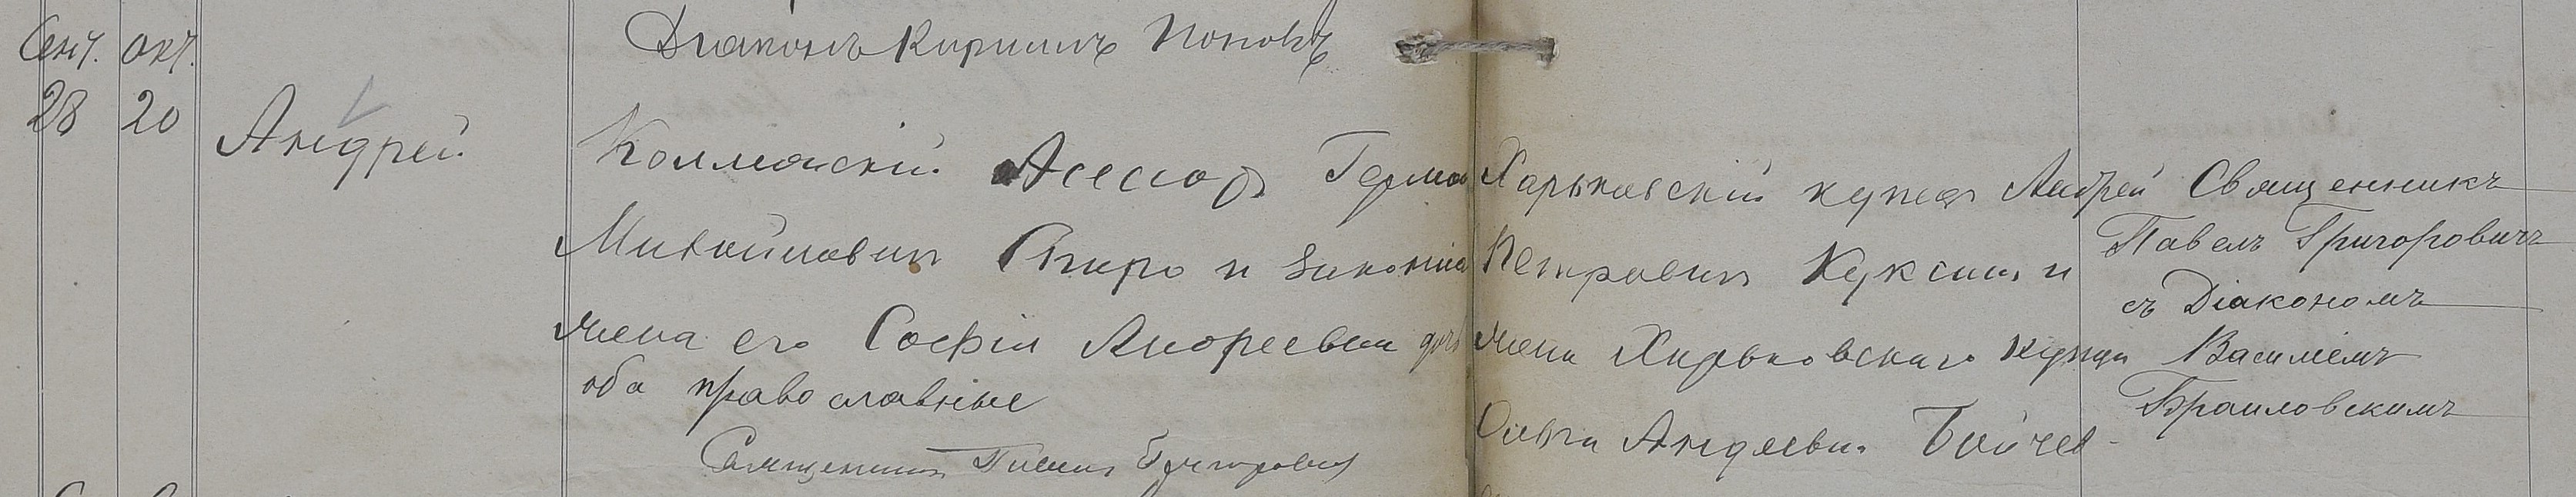 Сент. окт.
28 20
Андрей
Діаконъ Кириллъ Поповъ
Коллежскій Асессоръ Герма
Михайловичъ Спиро и законна
жена его Софія Андреевна
оба православные
Священникъ Павелъ Григоровичъ
Харьковскій купецъ Андрей
Петровичъ Куксинъ и
жена Харьковскаго купца
Ольга Андреевна
Священникъ
Павелъ Григоровичъ
съ Діакономъ
Василіемъ
Браиловскимъ